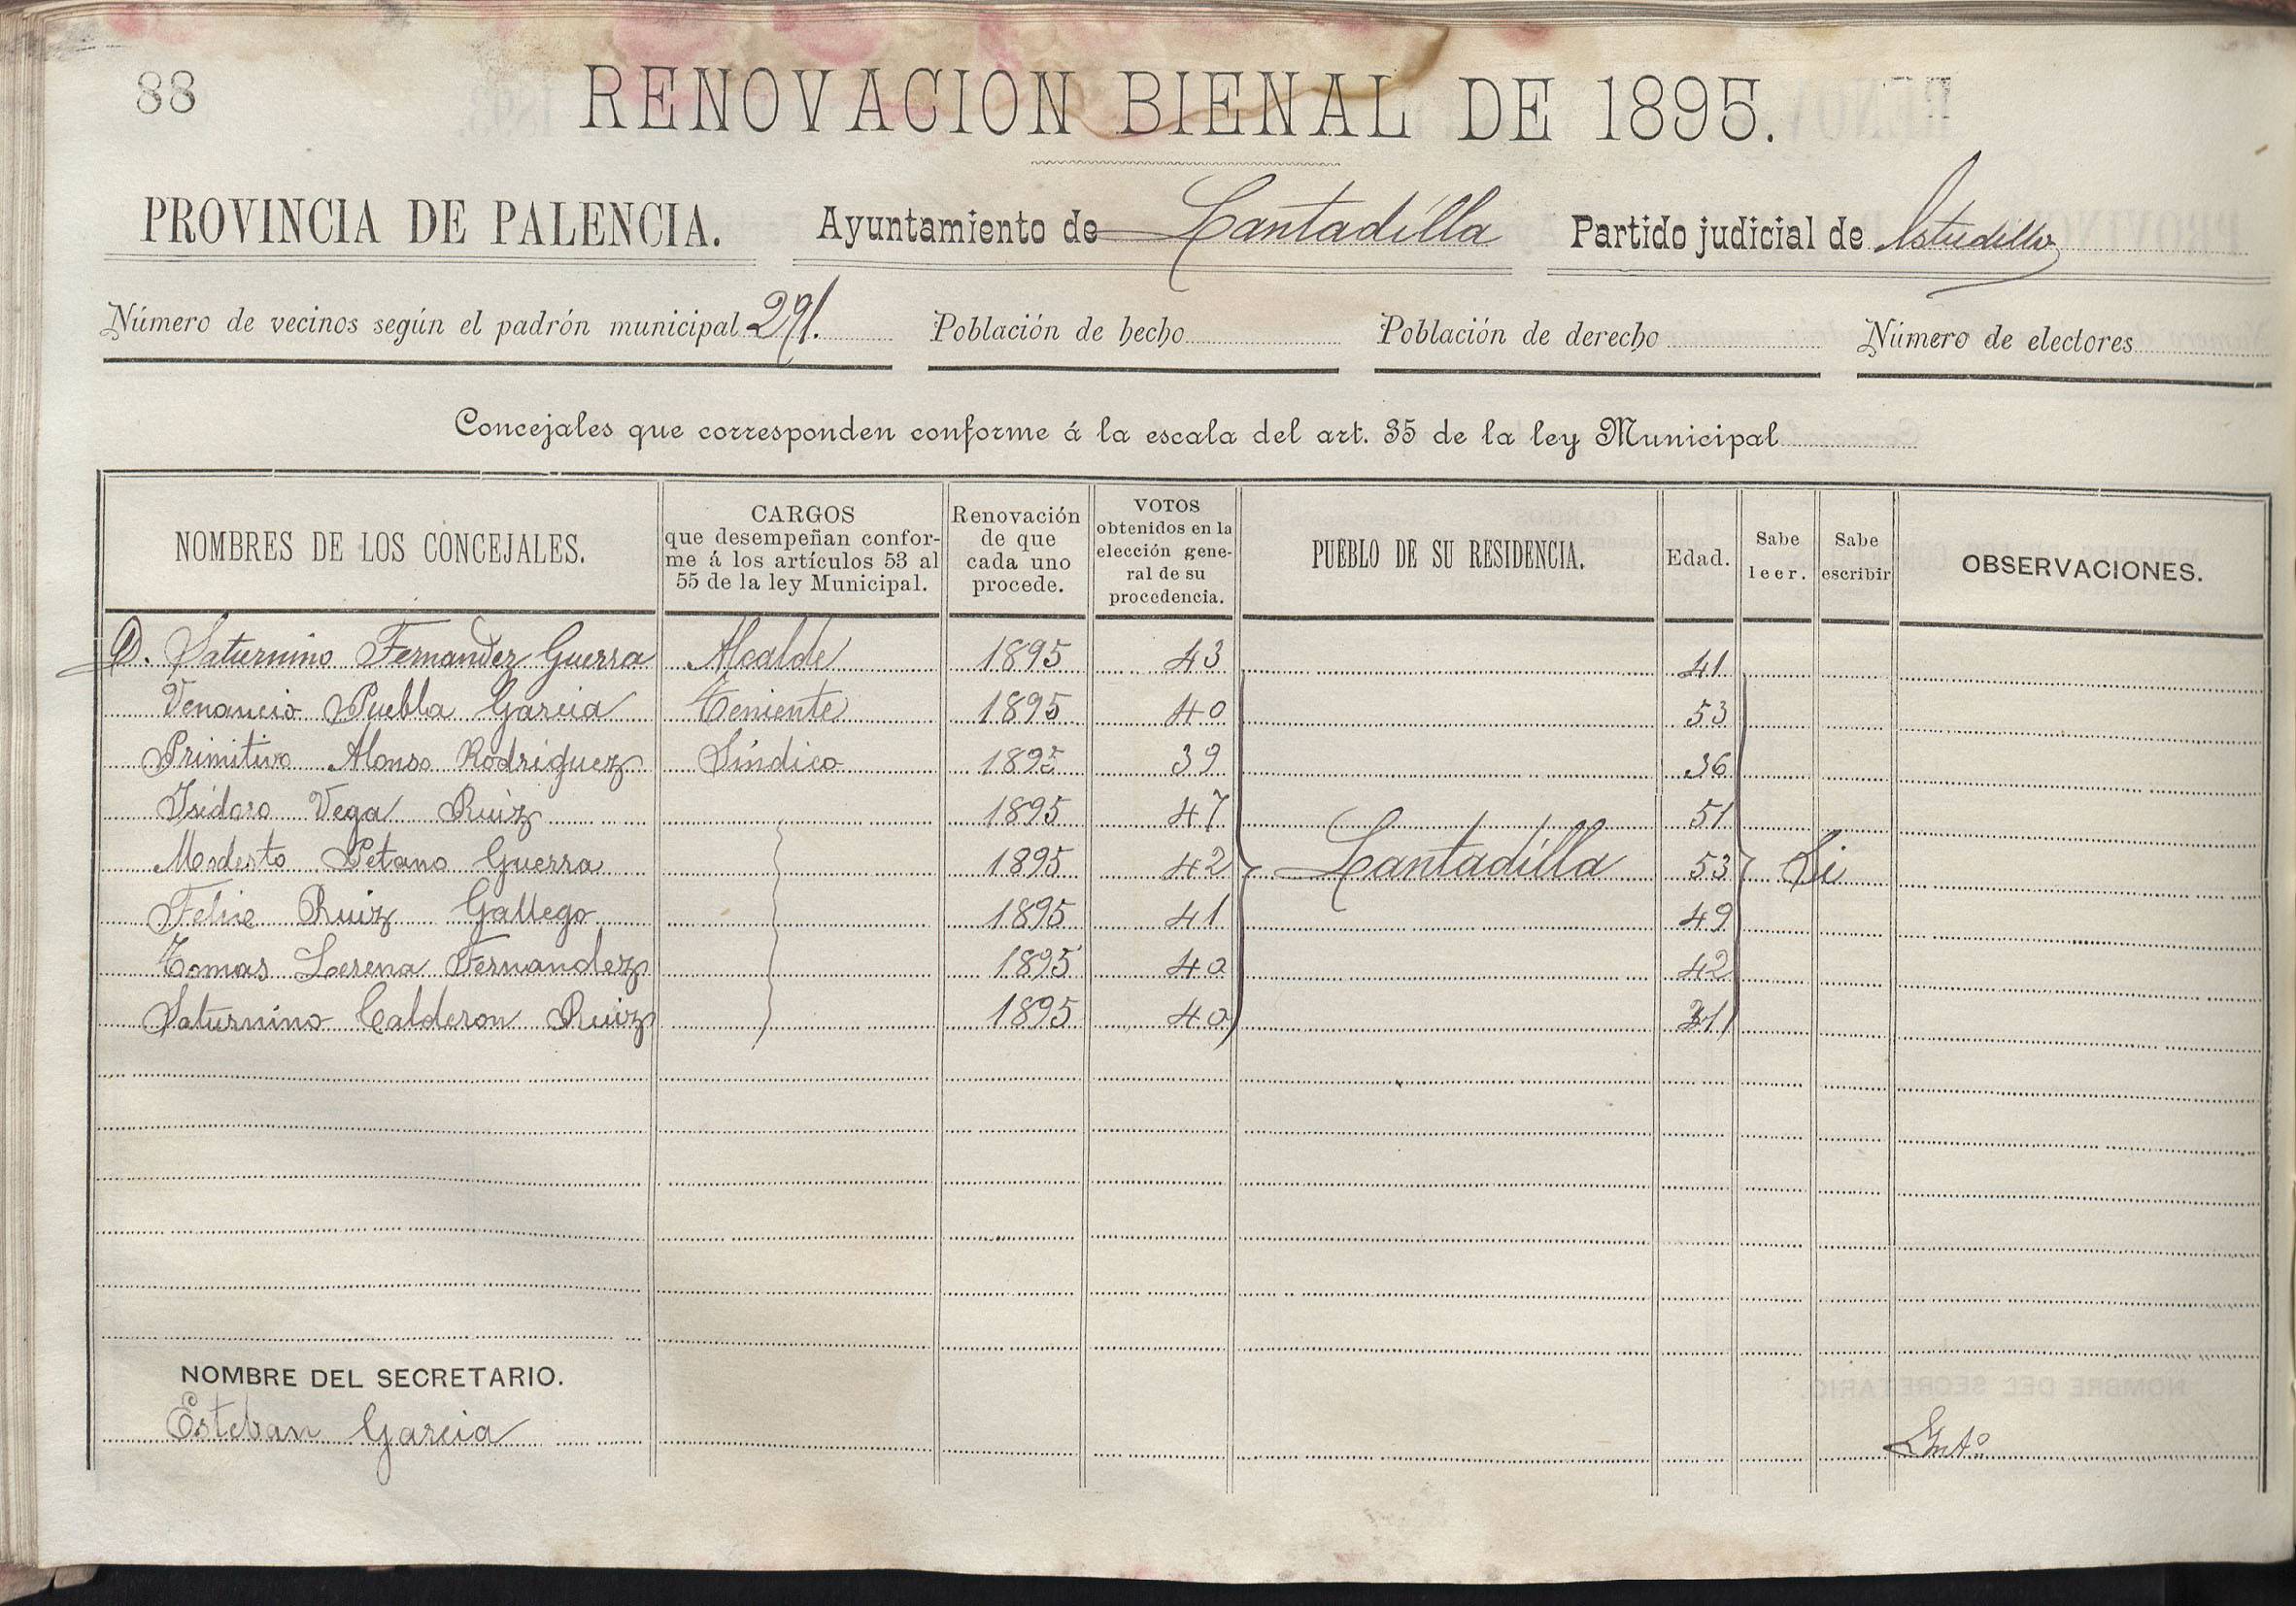 88
RENOVACION BIENAL DE 1895.
PROVINCIA DE PALENCIA. Ayuntamiento de Lantadilla Partido judicial de Astudillo
Número de vecinos según el padrón municipal 291. Población de hecho Población de derecho Número de electores
Concejales que corresponden conforme á la escala del art. 35 de la ley Municipal
NOMBRES DE LOS CONCEJALES. CARGOS que desempeñan confor-me á los artículos 53 al 55 de la ley Municipal. Renovación de que cada uno procede. VOTOS obtenidos en la elección gene-ral de su procedencia. PUEBLO DE SU RESIDENCIA. Edad. Sabe leer. Sabe escribir OBSERVACIONES.
D. Saturnino Fernandez Guerra Alcalde 1895 43 41
Venancio Puebla Garcia Teniente 1895 40 53
Primitivo Alonso Rodriguez Síndico 1895 39 36
Isidoro Vega Ruiz 1895 47 51
Modesto Petano Guerra 1895 42 Lantadilla 53 Si
Felix Ruiz Gallego 1895 41 49
Tomas Lerena Fernandez 1895 40 42
Saturnino Calderon Ruiz 1895 40
NOMBRE DEL SECRETARIO.
Esteban Garcia